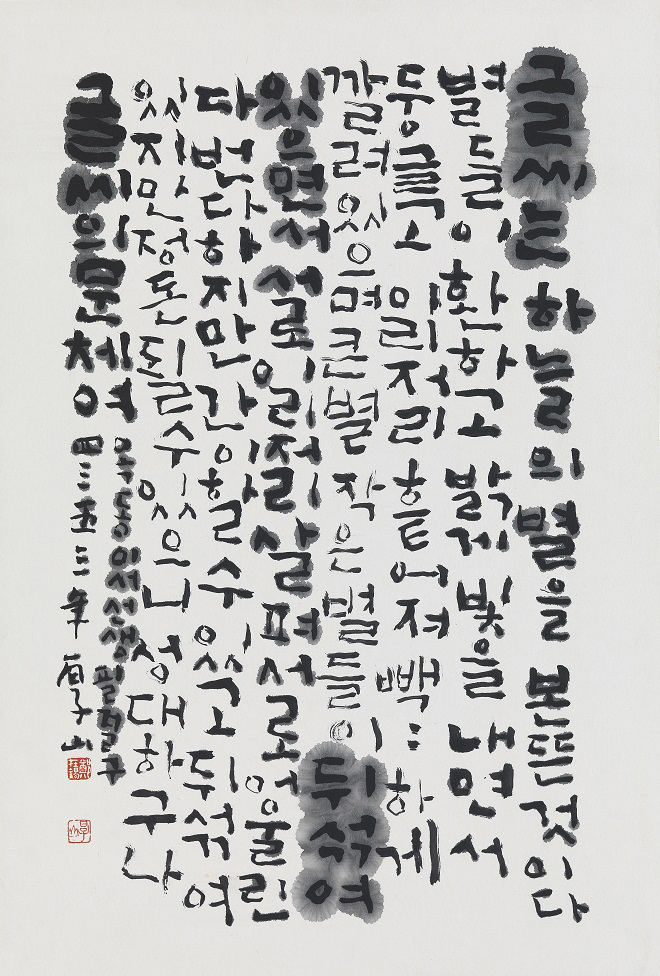 글씨는 하늘의 별을 본뜬 것이다
별들이 환하고 밝게 빛을 내면서
둥글고 이리저리 흩어져 빽:하게
깔려 있으며 큰 별 작은 별들이 뒤섞여
있으면서 서로 이리저리 살펴 서로 어울린
다 번다하지만 간이할 수 있고 뒤섞여
있지만 정돈될 수 있으니 성대하구나
글씨의 문체여
옥동 이서선생 필결구
四三五三年